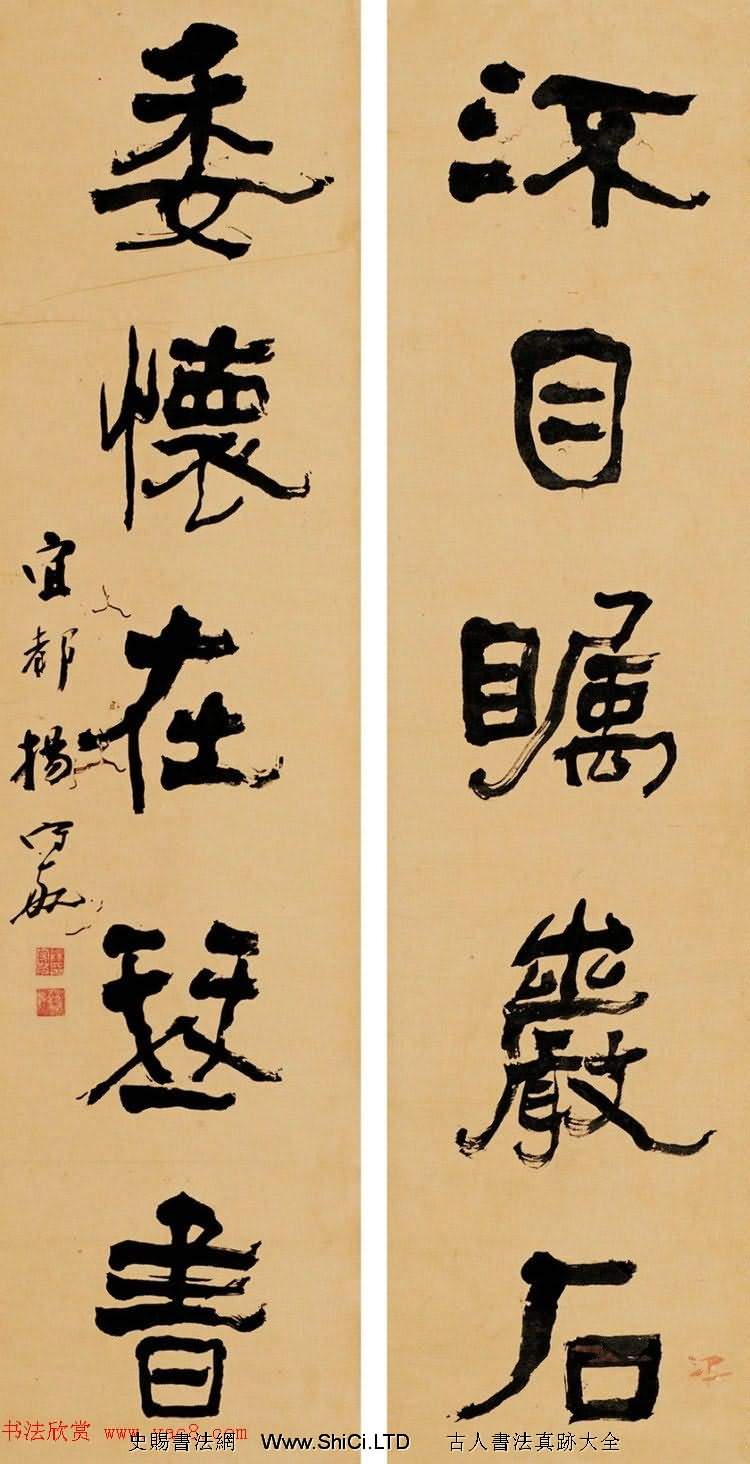 流目瞩巖石
委懷在琴書
宜都楊守敬
书法欣赏 www.yac8.com
史賜書法網 Www.ShiCi.LTD 古人書法真跡大全